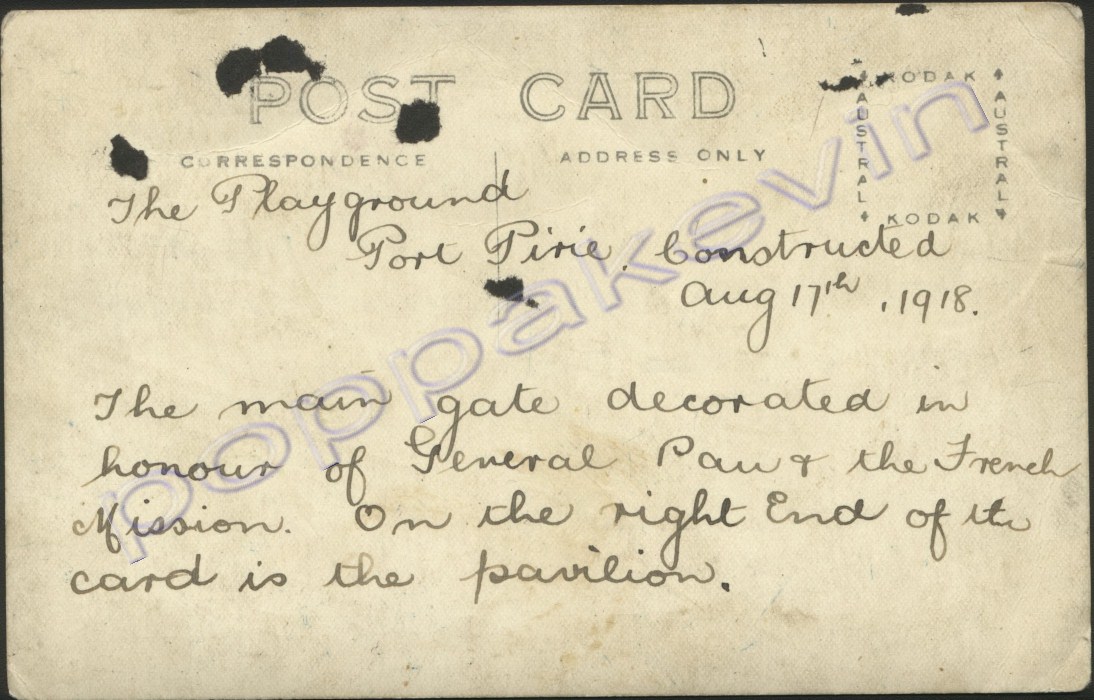 POST CARD
CORRESPONDENCE
ADDRESS ONLY
KODAK
AUSTRAL
AUSTRAL
KODAK
The Playground
Port Pirie. Constructed
Aug 17th, 1918.
The main gate decorated in
honour of General Pau & the French
Mission. On the right End of the
card is the pavilion.
poppakevin